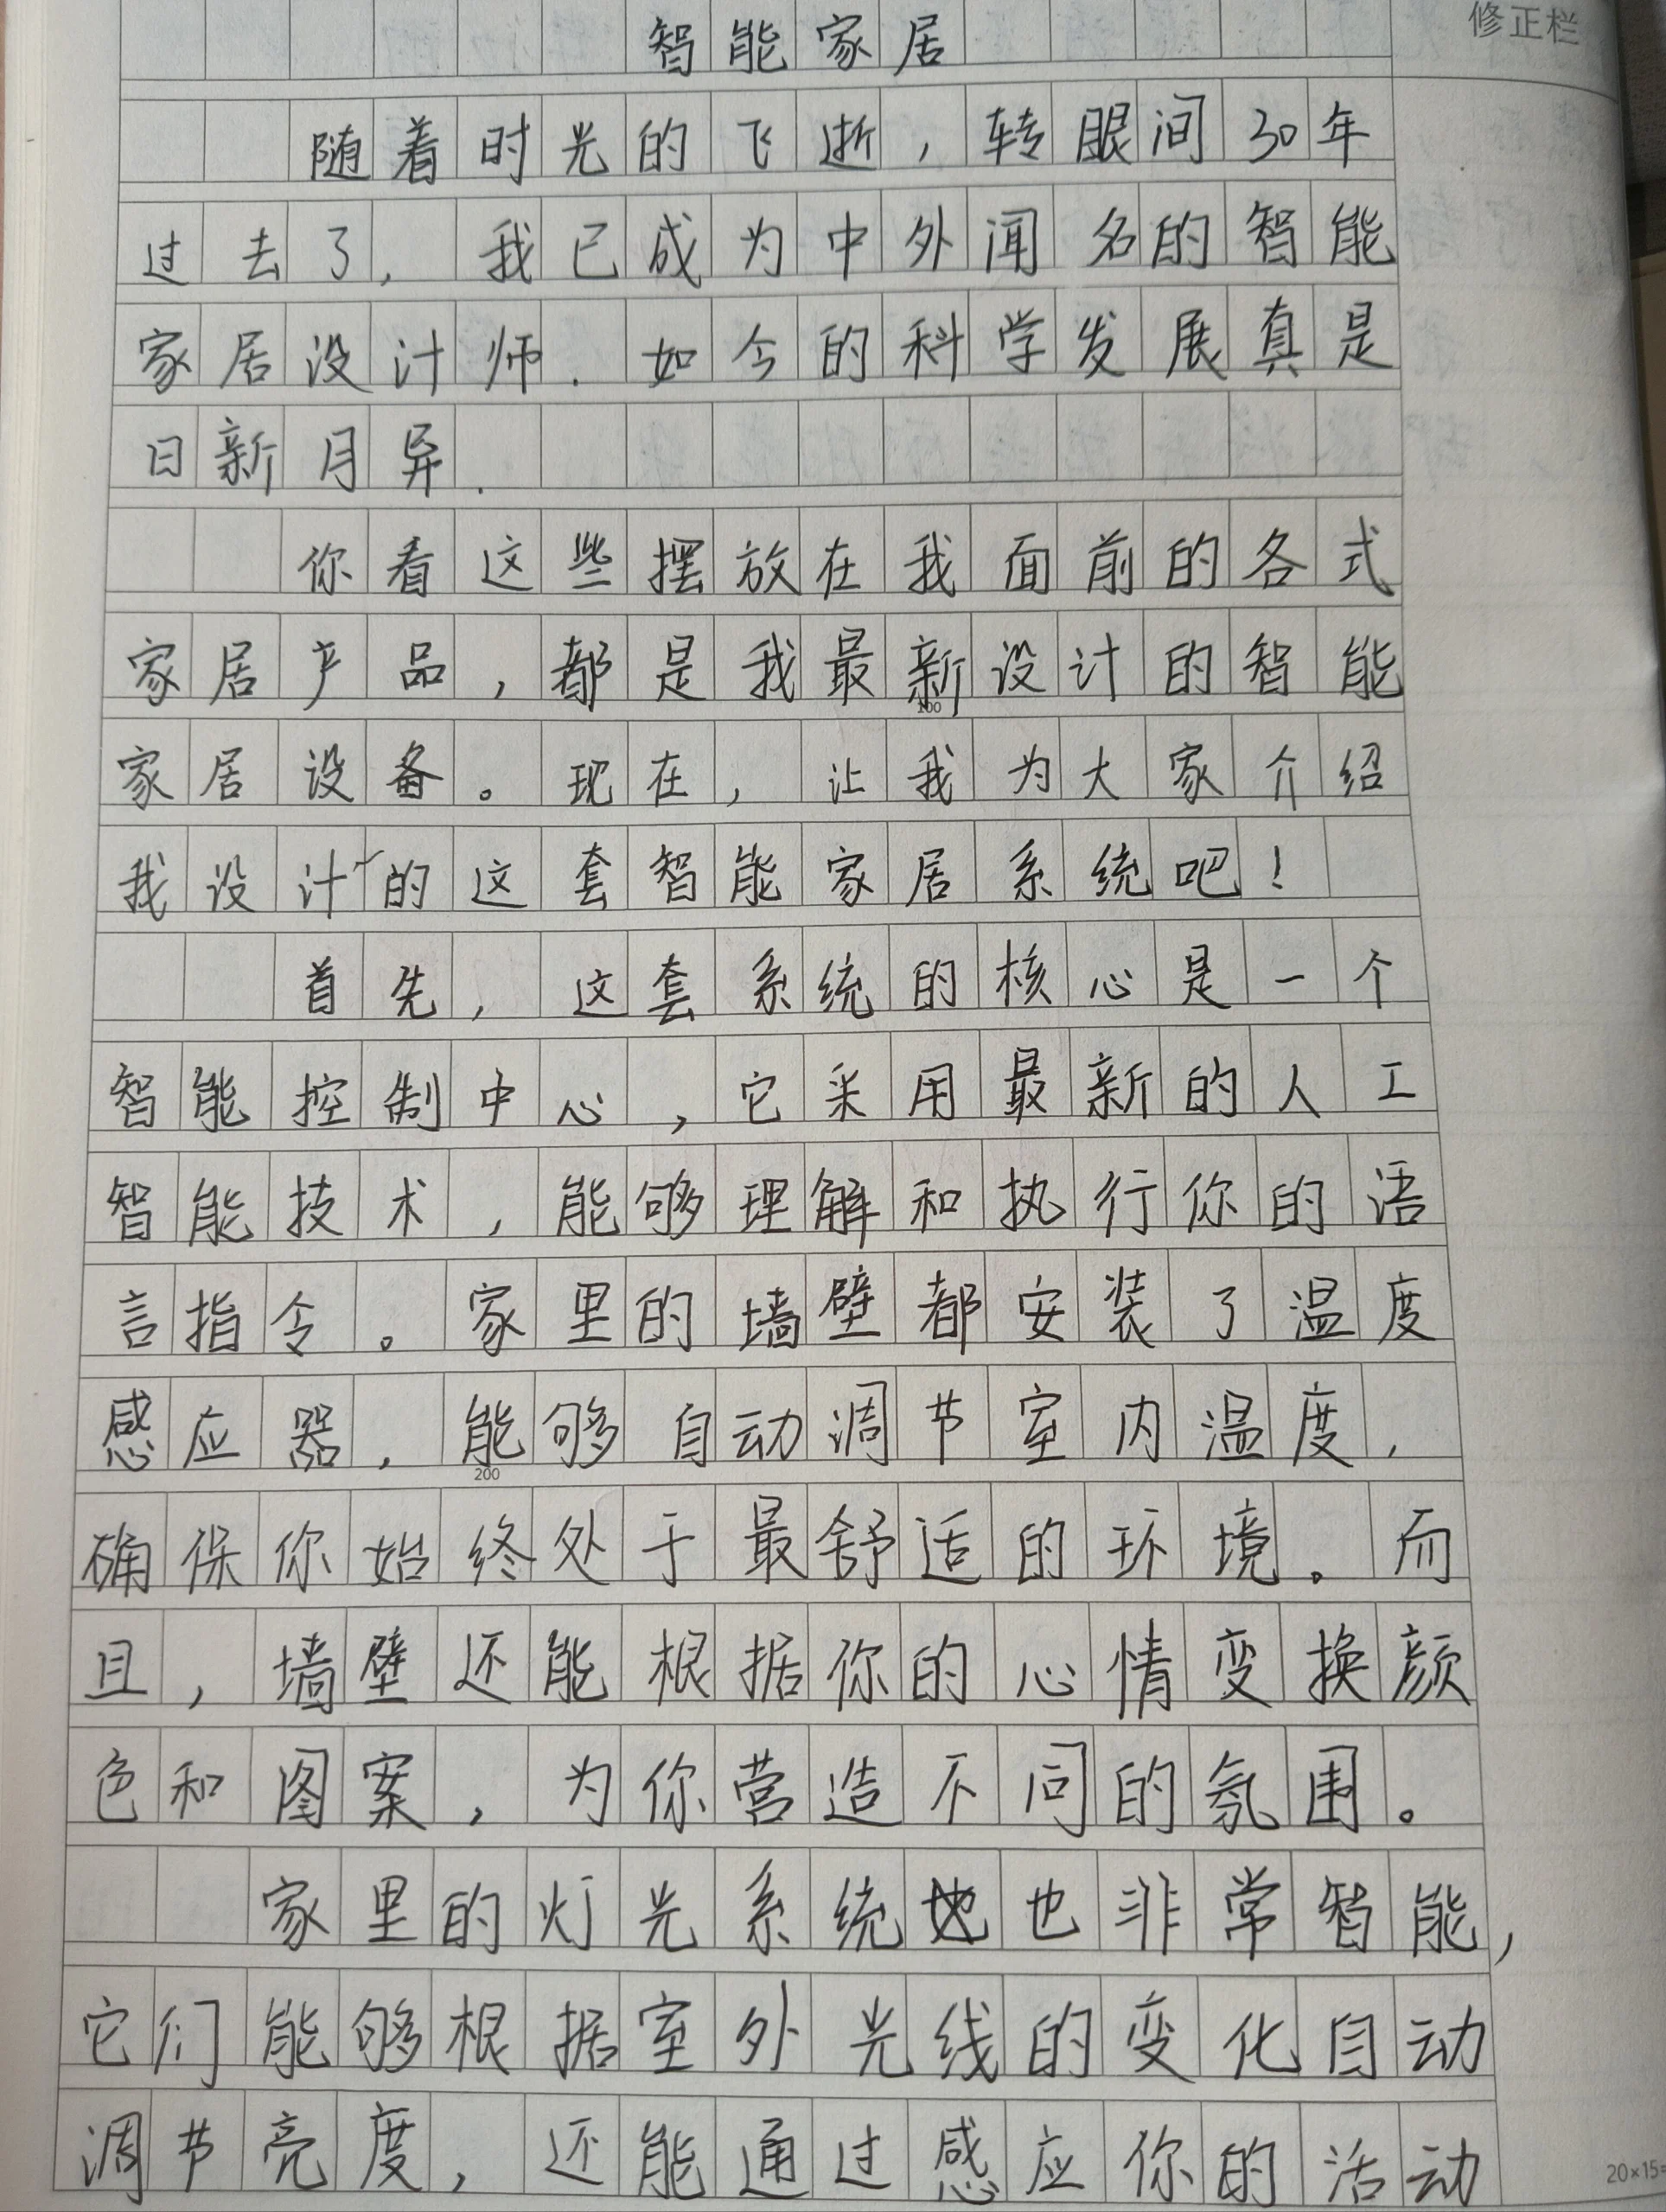 智能家居
修正栏
随着时光的飞逝，转眼间30年
过去了，我已成为中外闻名的智能
家居设计师.如今的科学发展真是
日新月异.
你看这些摆放在我面前的各式
家居产品，都是我最新设计的智能
100
家居设备。现在，让我为大家介绍
我设计的这套智能家居系统吧！
首先，这套系统的核心是一个
智能控制中心，它采用最新的人工
智能技术，能够理解和执行你的语
言指令。家里的墙壁都安装了温度
感应器，能够自动调节室内温度，
200
确保你始终处于最舒适的环境。而
且，墙壁还能根据你的心情变换颜
色和图案，为你营造不同的氛围。
家里的灯光系统也非常智能，
它们能够根据室外光线的变化自动
调节亮度，还能通过感应你的活动
20×15=